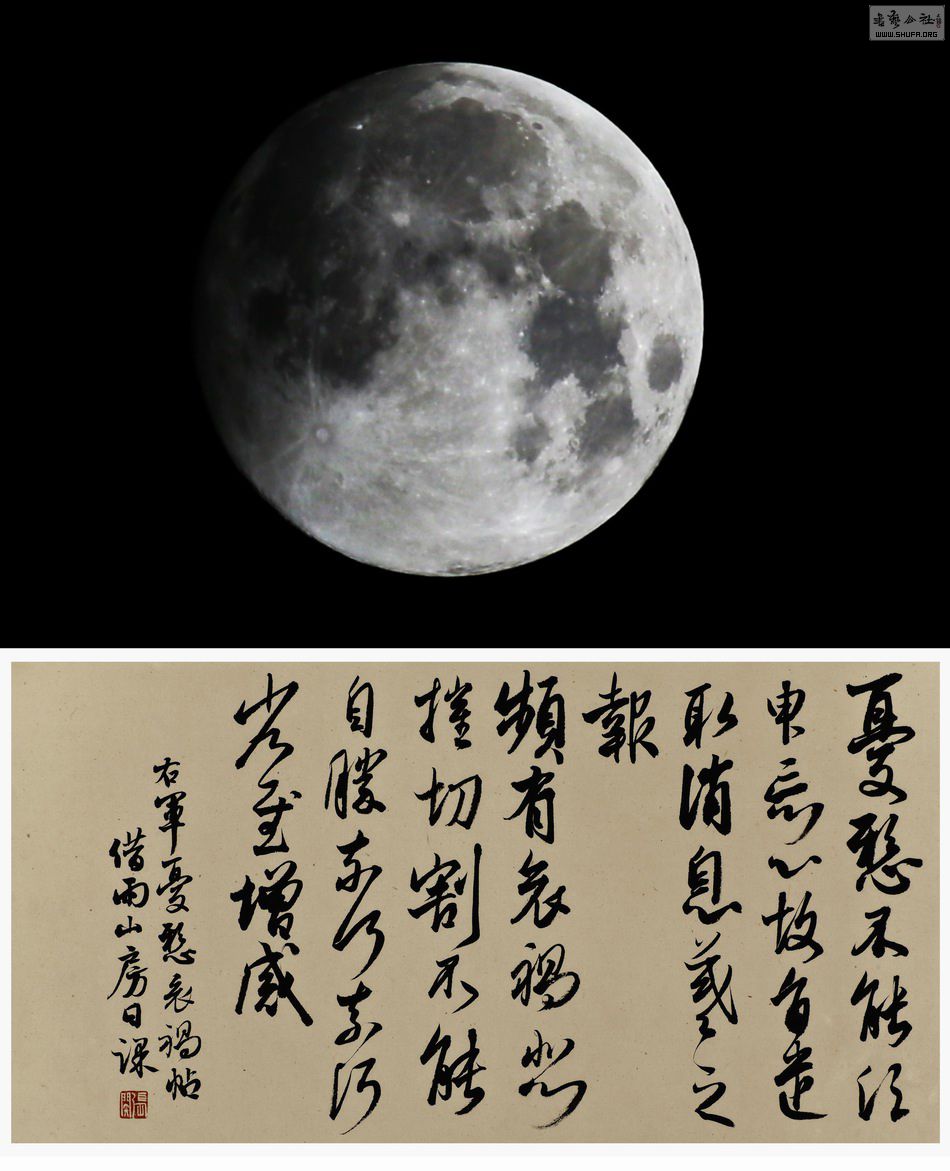 書藝公社
WWW.SHUFA.ORG
憂懸不能須
臾忘心故旬遣
取消息羲之
報
頻有哀禍悲
摧切割不能
自勝奈何奈何
省慰增感
右軍憂懸哀禍帖
借雨山房日課